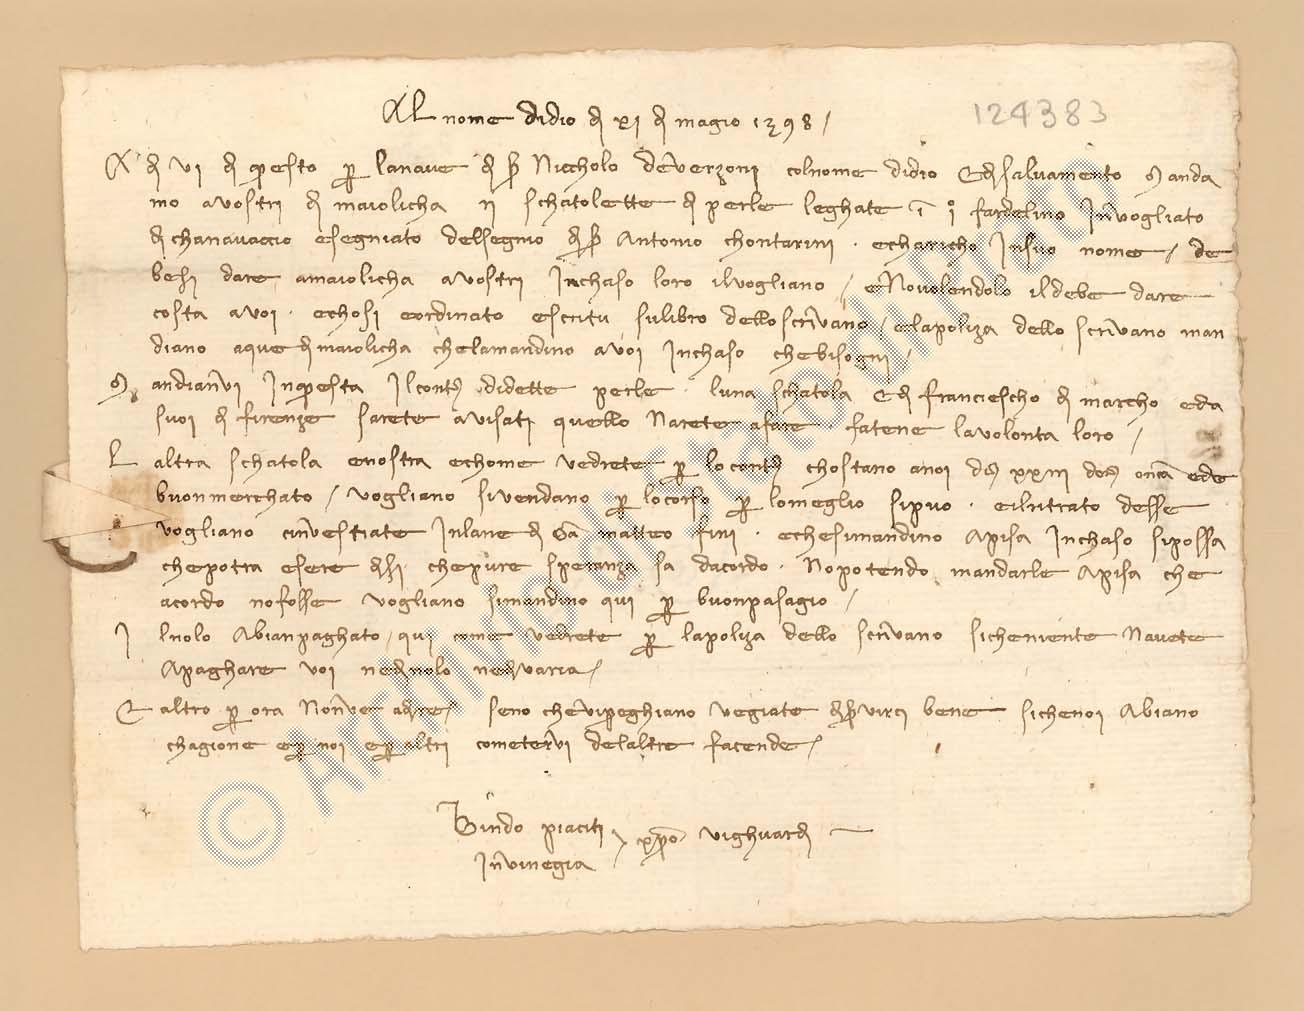 Al nome didio di xi di magio 1398
124383
A di vi di questo per lanave di ser Niccholo de verzoni colnome didio e di salvamento manda
mo a vostri di maiolicha ij schatolette di perle leghate in 1º fardelino invogliato
di chanavaccio e segniato del segnio di ser Antonio chontarini e charicho in suo nome de
besi dare a maiolicha a vostri in chaso loro il vogliano e No volendolo il debe dare
costa a voi e chosi e ordinato e scritu su libro dello scrivano e la poliza dello scrivano man
diano a que di maiolicha che la mandino a voi in chaso che bisogni
Mandianvi in questa il conto di dette perle luna schatola e di franciescho di marcho e da
suoi di firenze sarete avisati quello Narete a fare fatene la volonta loro
Laltra schatola e nostra e chome vedrete per lo conto chostano a noi xxiii onca ede
buon merchato vogliano si vendano per lo corso per lo meglio si puo e il ritrato desse
vogliano investiate in lane di San matteo fini e che si mandino a Pisa in chaso si possa
che potra esere di si che pure speranza sa dacordo No potendo mandarle a Pisa che
acordo no fosse vogliano si mandino qui per buon pasagio
I lnolo abian paghato qui come vedrete per la poliza dello scrivano si che niente Navete
a paghare voi ne di nolo ne d varia
E altro per ora Nonve a dire se no che vi preghiano vegiate di servirci bene si che noi abiano
chagione e per noi e per altri cometervi delaltre facende
Bindo piaciti
in vinegia
© Archivio di Stato di Prato